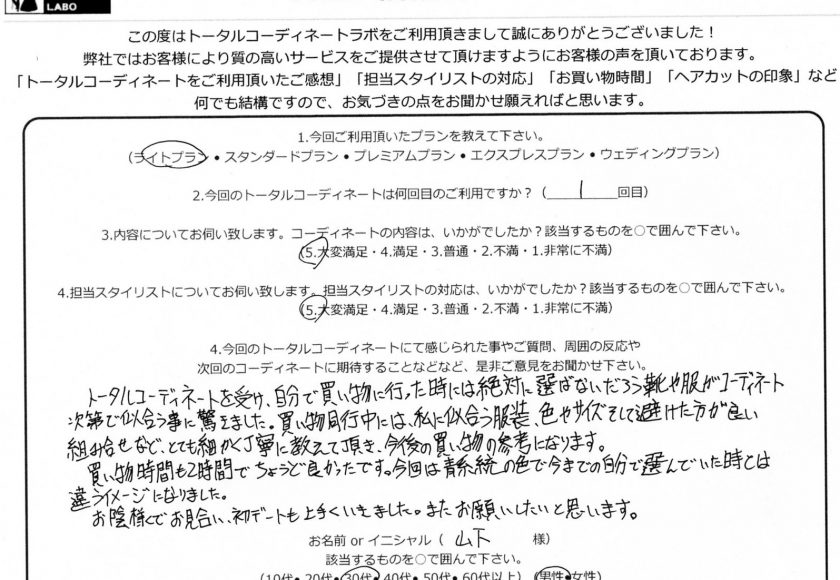 LABO
この度はトータルコーディネートラボをご利用頂きまして誠にありがとうございました！
弊社ではお客様により質の高いサービスをご提供させて頂けますようにお客様の声を頂いております。
「トータルコーディネートをご利用頂いたご感想」「担当スタイリストの対応」「お買い物時間」「ヘアカットの印象」など
何でも結構ですので、お気づきの点をお聞かせ願えればと思います。
1.今回ご利用頂いたプランを教えて下さい。
（ライトプラン・スタンダードプラン・プレミアムプラン・エクスプレスプラン・ウェディングプラン）
2.今回のトータルコーディネートは何回目のご利用ですか？（ 1 回目）
3.内容についてお伺い致します。コーディネートの内容は、いかがでしたか？該当するものを○で囲んで下さい。
（5.大変満足・4.満足・3.普通・2.不満・1.非常に不満）
4.担当スタイリストについてお伺い致します。担当スタイリストの対応は、いかがでしたか？該当するものを○で囲んで下さい。
（5.大変満足・4.満足・3.普通・2.不満・1.非常に不満）
4.今回のトータルコーディネートにて感じられた事やご質問、周囲の反応や
次回のコーディネートに期待することなどなど、是非ご意見をお聞かせ下さい。
トータルコーディネートを受け、自分で買い物に行った時には絶対に選ばないだろう靴や服がコーディネート
次第で似合う事に驚きました。買い物同行中には、私に似合う服装、色やサイズそして避けた方が良い
組み合せなど、とても細かく丁寧に教えて頂き、今後の買い物の参考になります。
買い物時間も2時間でちょうど良かったです。今回は青系統の色で今までの自分で選んでいた時とは
違うイメージになりました。
お陰様でお見合い、初デートも上手くいきました。またお願いしたいと思います。
お名前 or イニシャル（ 山下 様）
該当するものを○で囲んで下さい。
（10代・20代・30代・40代・50代・60代以上）（男性・女性）